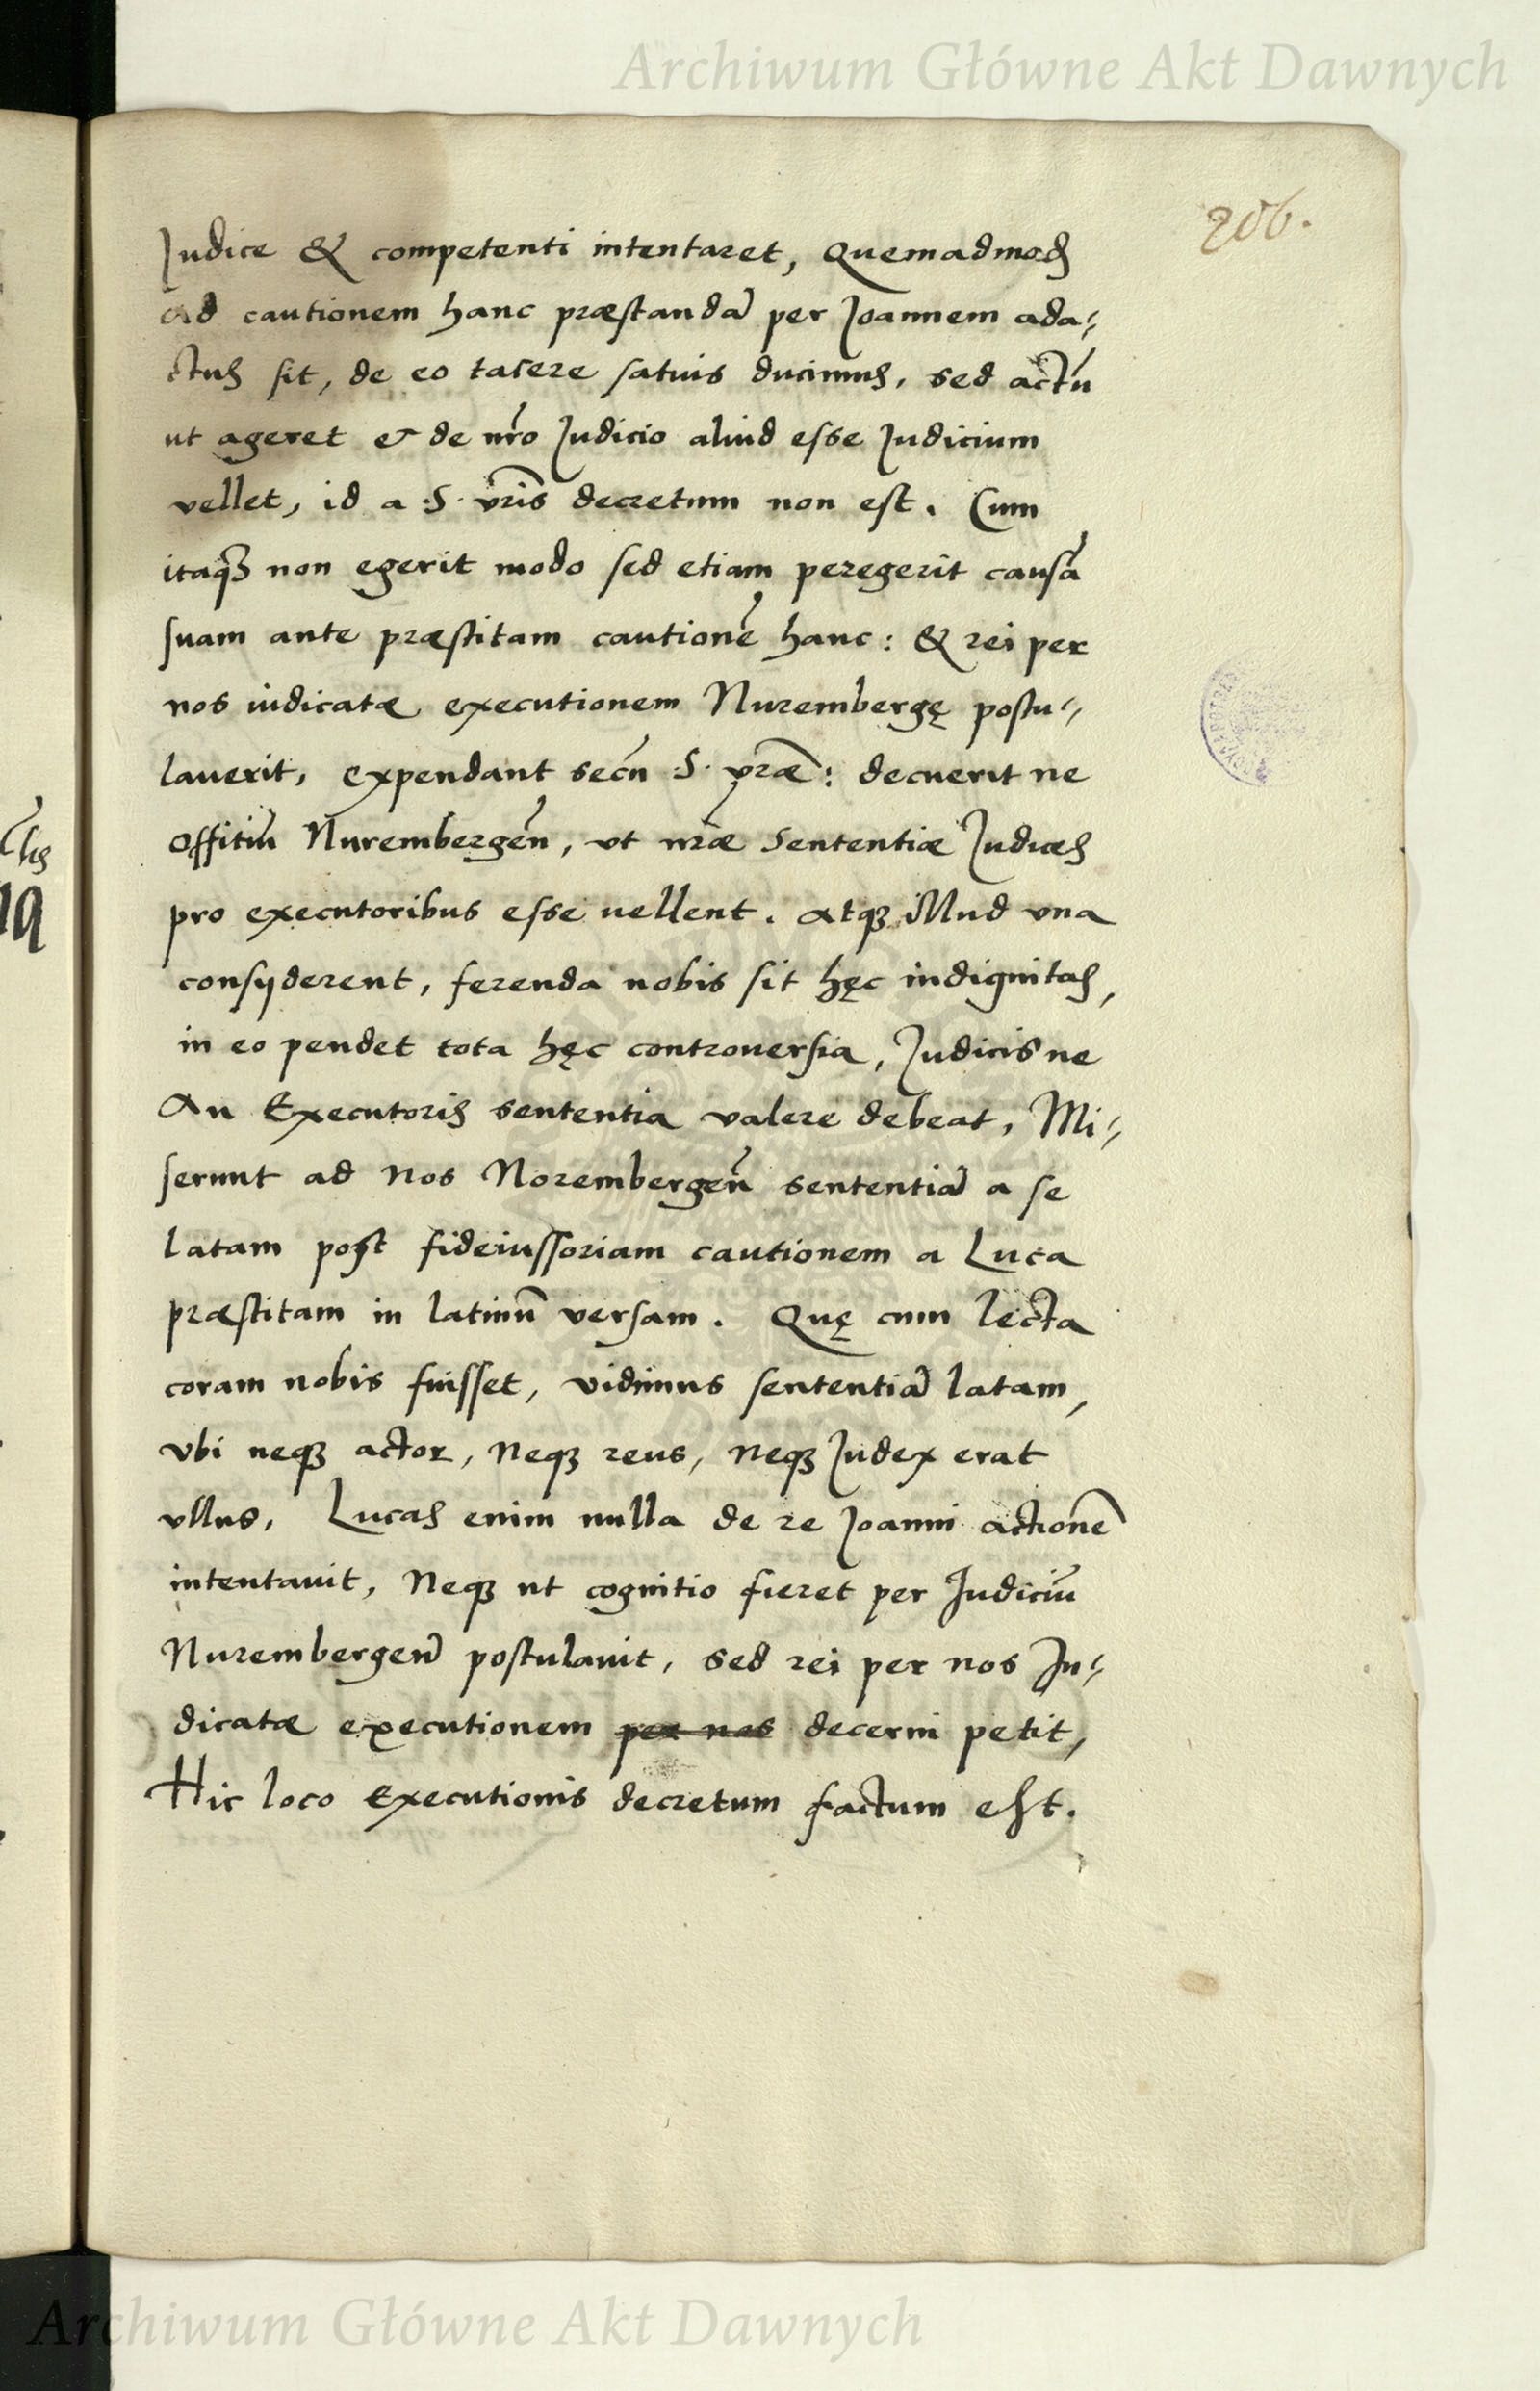 Archiwum Główne Akt Dawnych
206.
Judice & competenti intentaret, Quemadmod
ad cautionem hanc præstandā per Joannem ada-
ctus sit, de eo tacere satius ducimus, sed actū
ut ageret & de nr̄o Judicio aliud esse Judicium
vellet, id a .S. vr̄is decretum non est. Cum
itaq₃ non egerit modo sed etiam peregerit causā
suam ante præstitam cautionē hanc: & rei per
nos iudicatæ executionem Nurembergę postu-
laverit, expendant secū .S. vr̄æ: decuerit ne
Offitiū Nurembergeñ, vt nr̄æ Sententiæ Judices
pro executoribus esse uellent. Atq₃ illud vna
consyderent, ferenda nobis sit hęc indignitas,
in eo pendet tota hęc controuersia, Judicis ne
An Executoris sententia valere debeat, Mi-
serunt ad Nos Norembergeñ sententiā a se
latam post fideiussoriam cautionem a Luca
præstitam in latinū versam. Quę cum lecta
coram nobis fuisset, vidimus sententiā latam,
vbi neq₃ actor, neq₃ reus, neq₃ Judex erat
vllus, Lucas enim nulla de re Joanni actionē
intentauit, Neq₃ ut cognitio fieret per Judiciū
Nurembergeñ postulauit, sed rei per nos Ju-
dicatæ executionem per nos decerni petit,
Hic loco Executionis decretum factum est.
Archiwum Główne Akt Dawnych